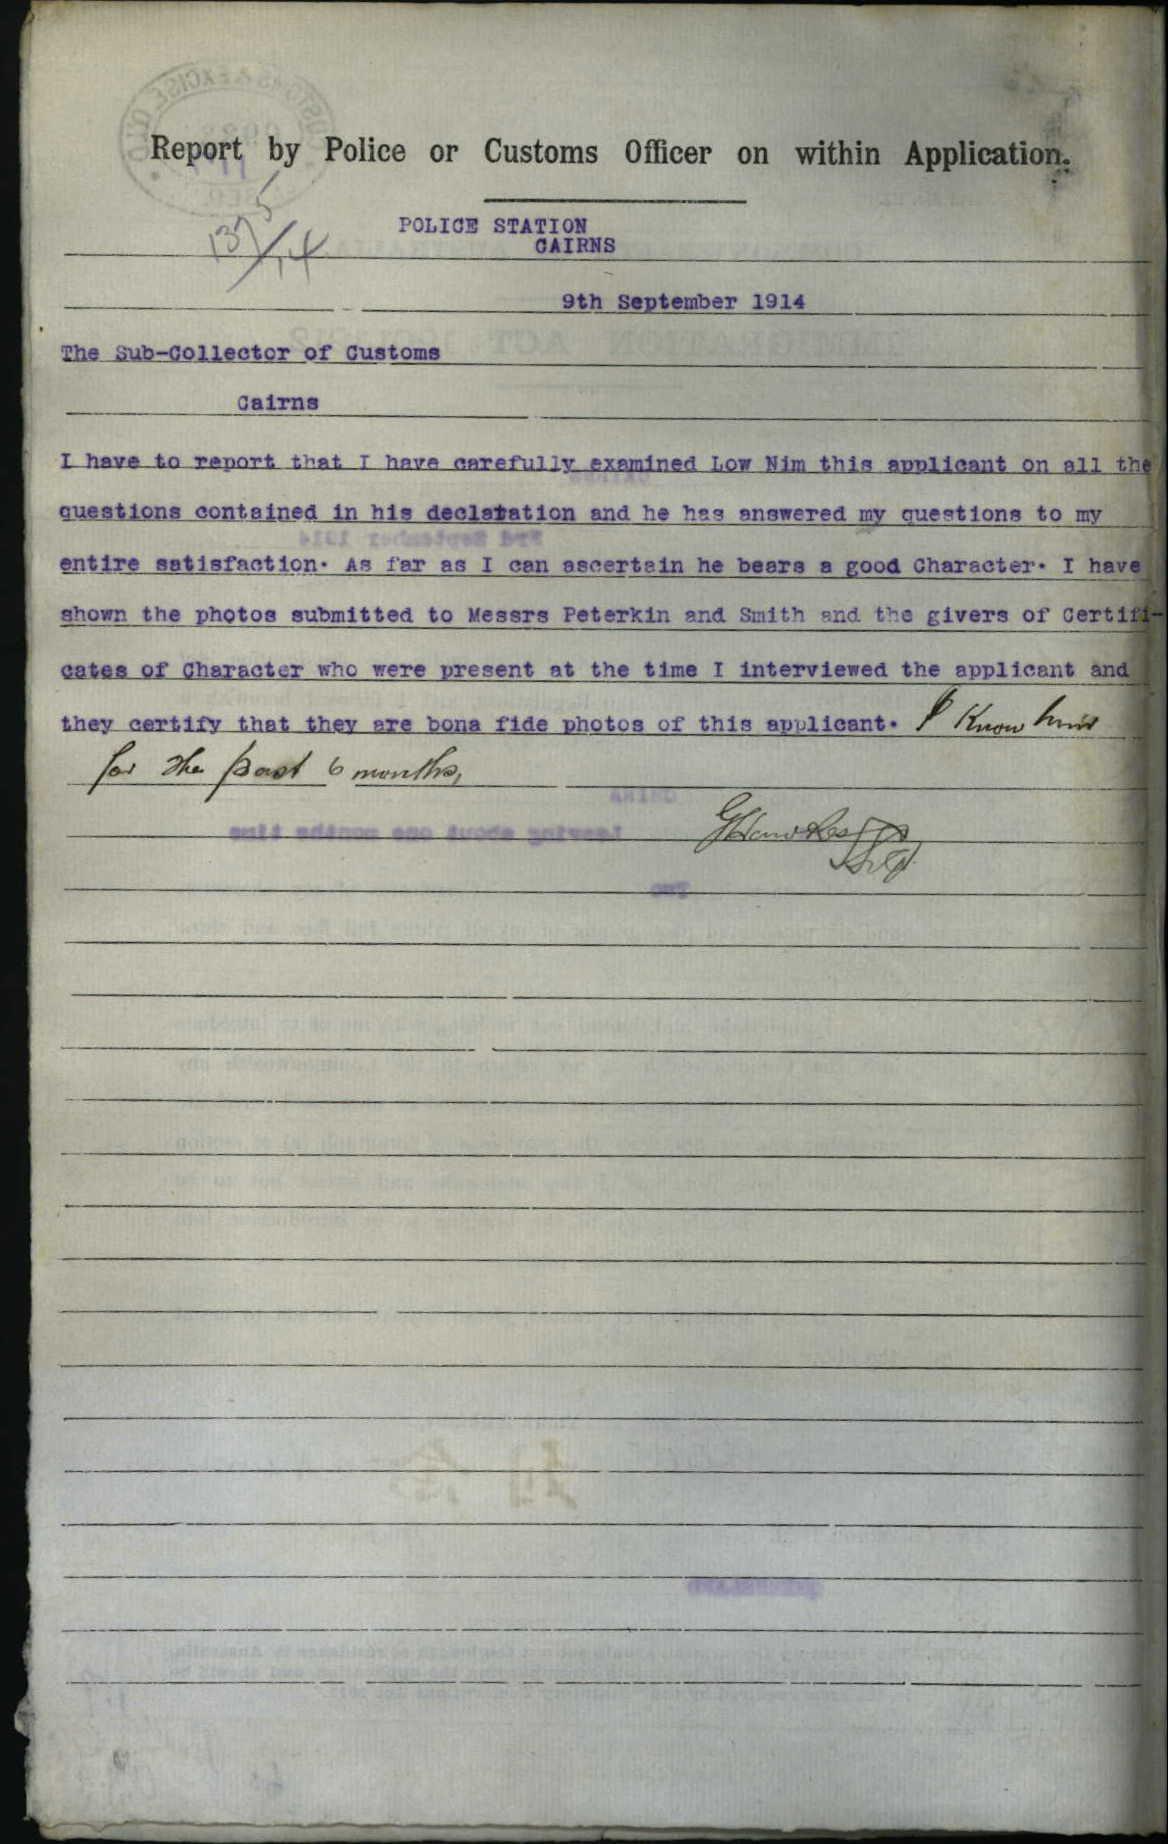 Report by Police or Customs Officer on within Application.
1375/14
POLICE STATION
CAIRNS
9th September 1914
The Sub-Collector of Customs
Cairns
I have to report that I have carefully examined Low Nim this applicant on all the
questions contained in his declatation and he has answered my questions to my
entire satisfaction. As far as I can ascertain he bears a good Character. I have
shown the photos submitted to Messrs Peterkin and Smith and the givers of Certifi-
cates of Character who were present at the time I interviewed the applicant and
they certify that they are bona fide photos of this applicant. I Know him
for the past 6 months,